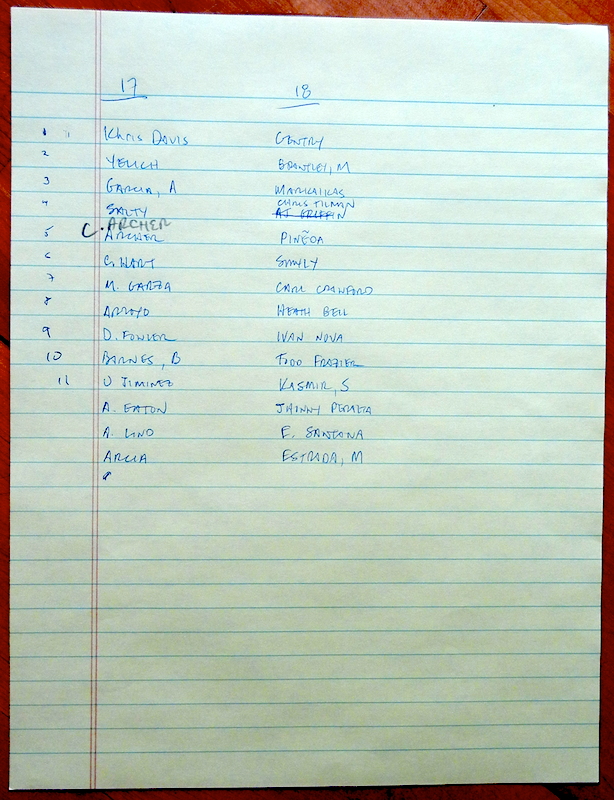 17 18
1 Khris Davis GENTRY
2 YELICH BRANTLEY, M
3 GARCIA, A MARKAIKAS
4 SALTY CHRIS TILMAN
AJ GRIFFIN
C. ARCHER
5 ARCHER PIÑEDA
6 C. HART SMYLY
7 M. GARZA CARL CRAWFORD
8 ARROYO HEATH BELL
9 D. FOWLER IVAN NOVA
10 BARNES, B TODD FRAZIER
11 U JIMINEZ KASMIR, S
A. EATON JHONNY PERALTA
A. LIND E. SANTANA
ARCIA ESTRADA, M